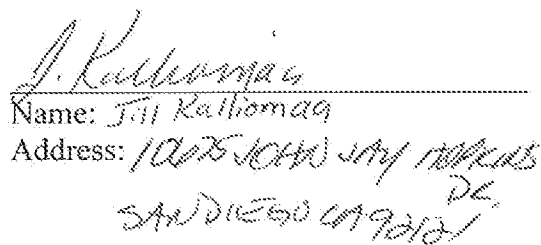 J. Kalliomaa
Name: Jill Kalliomaa
Address: 10675 JOHN JAY HOPKINS
DR,
SAN DIEGO CA 92121